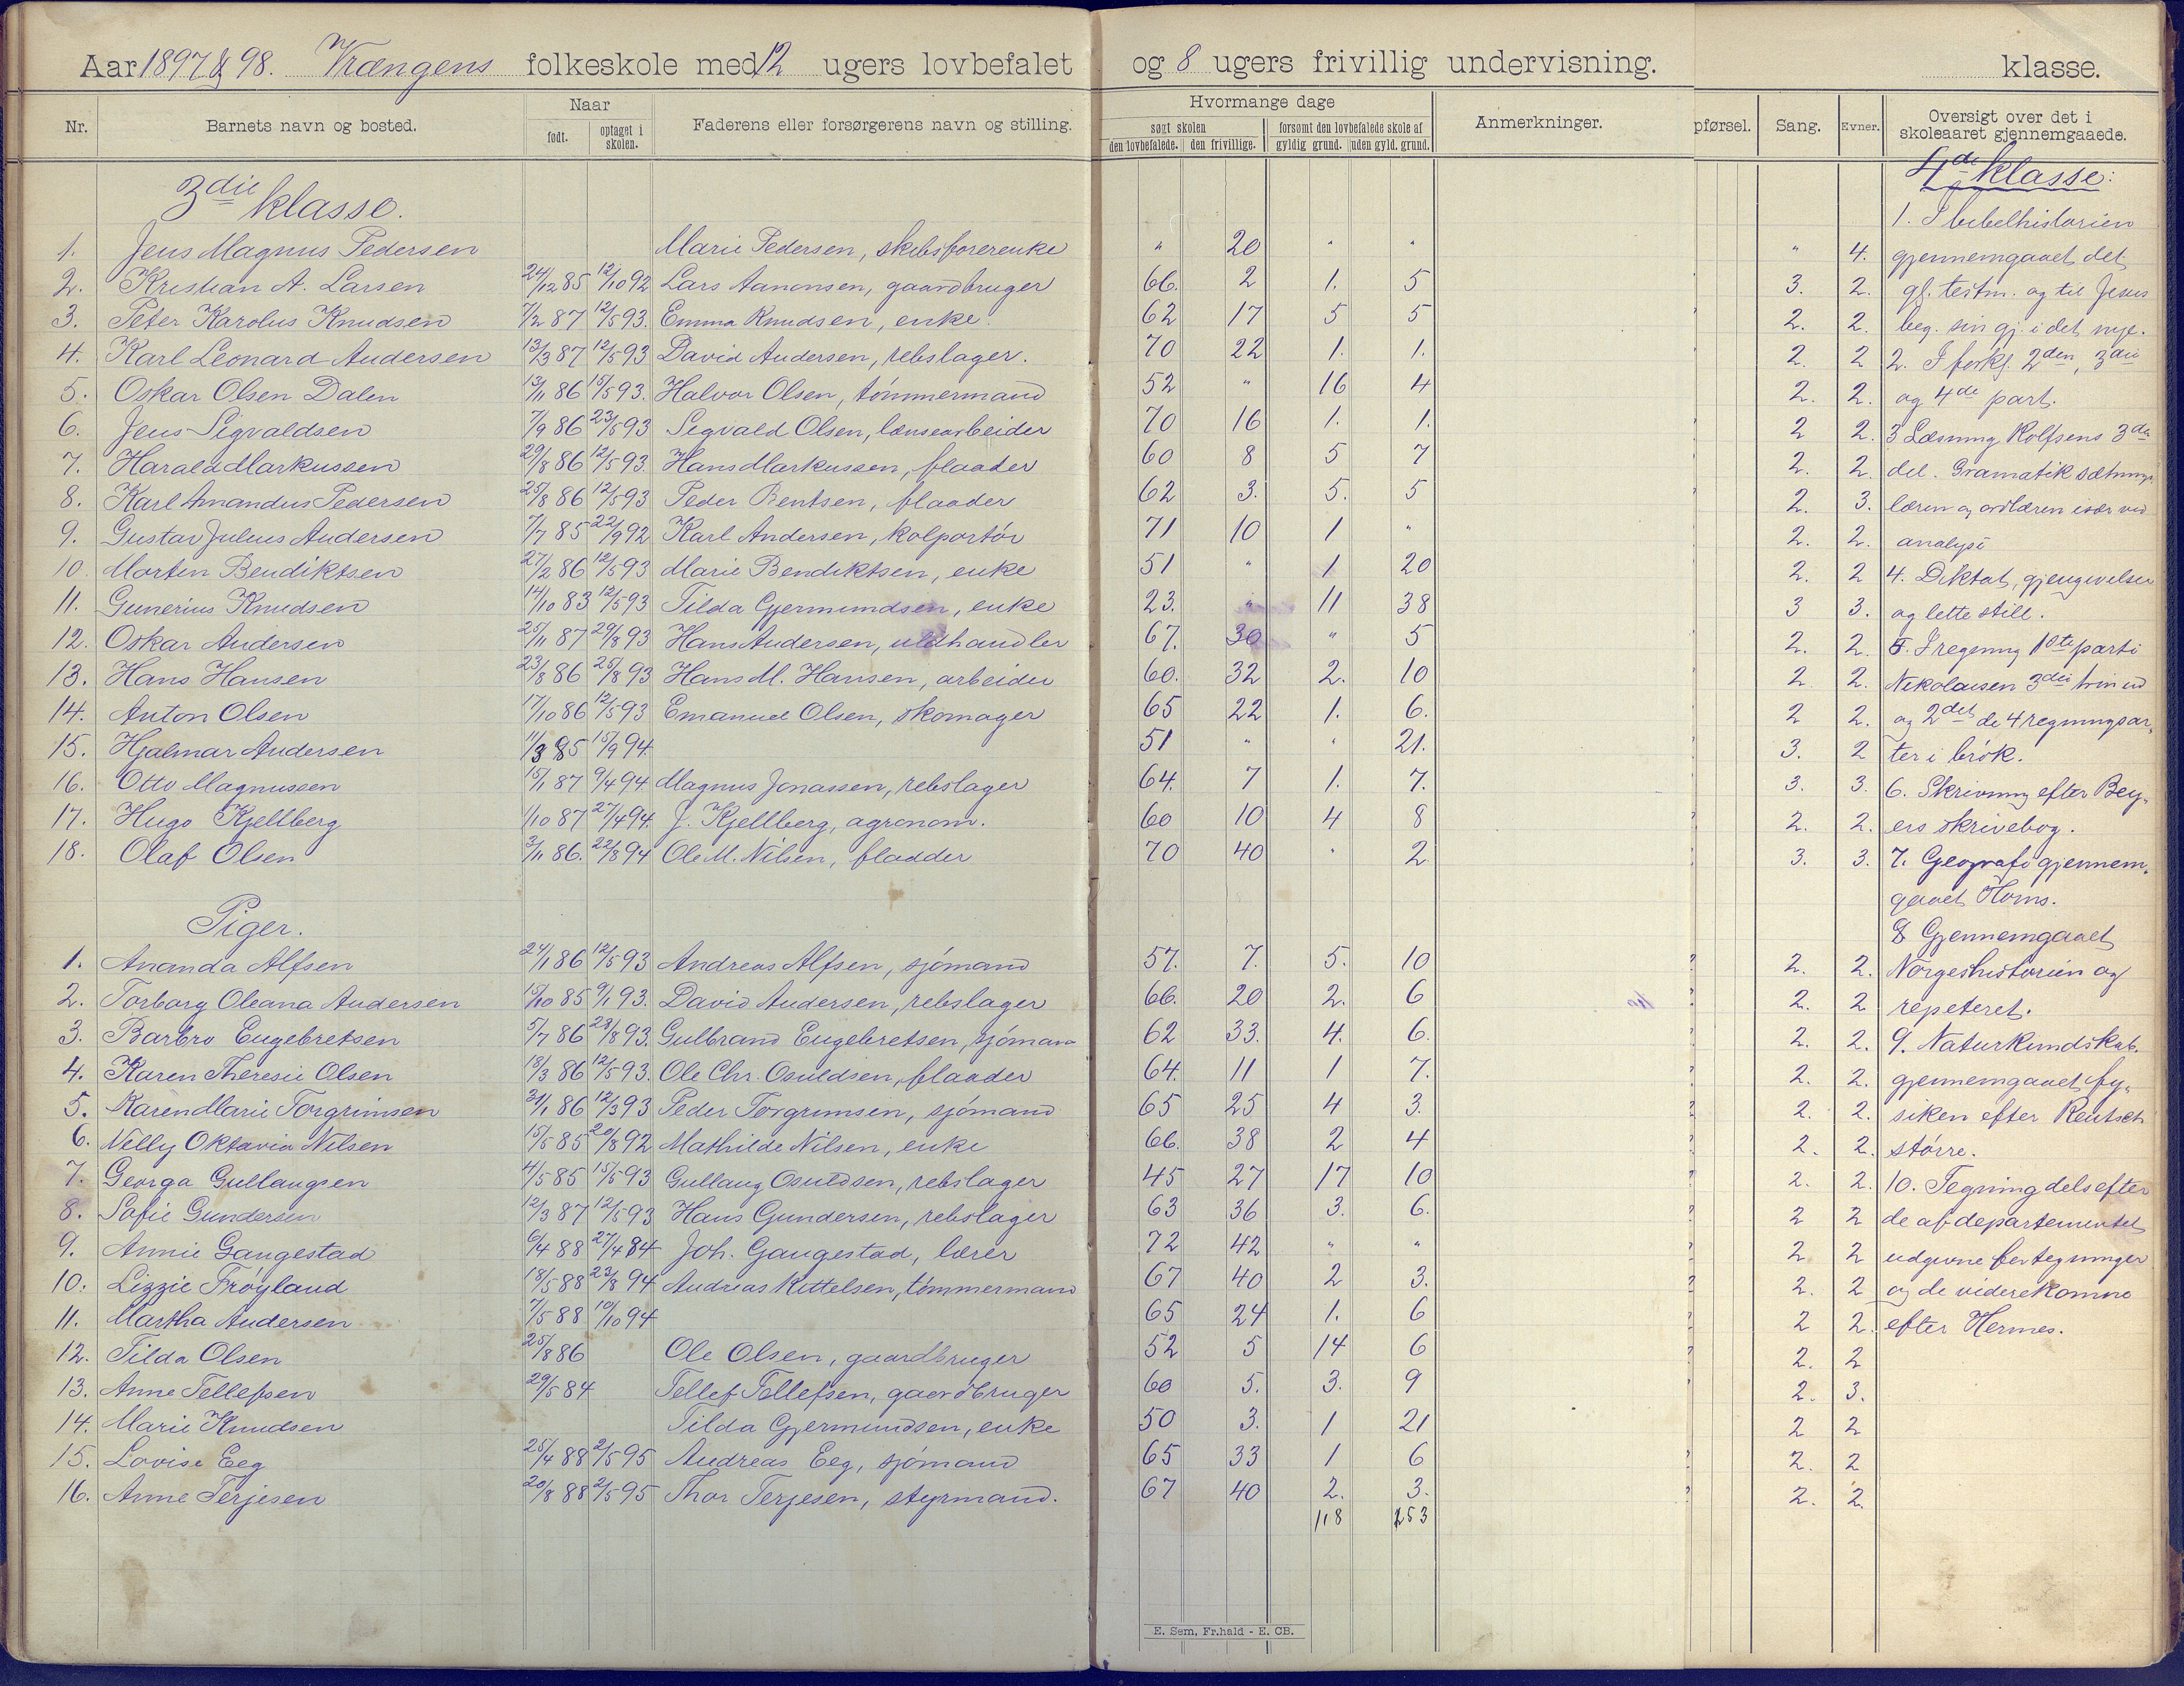 Aar 1897 & 98. Krængens folkeskole med 12 ugers lovbefalet og 8 ugers frivillig undervisning. klasse.
Nr. Barnets navn og bosted. Naar født. optaget i skolen. Faderens eller forsørgerens navn og stilling. Hvormange dage søgt skolen den lovbefalede. den frivillige. forsømt den lovbefalede skole af gyldig grund. uden gyld. grund. Anmerkninger. pførsel. Sang. Evner. Oversigt over det i skoleaaret gjennemgaaede.
3die klasse. 4de klasse:
1. I bibelhistorien
1. Jens Magnus Pedersen Marie Pedersen, skibsførerenke " 20 " " " 4. gjennemgaaet det
2. Kristian A. Larsen 24/12 85 12/10 92 Lars Aanonsen, gaardbruger 66. 2 1. 5 3. 2. gl. testm. og til Jesus
3. Peter Karolus Knudsen 7/2 87 12/5 93. Emma Knudsen, enke. 62 17 5 5 2. 2. beg. sin gj. i det nye.
4. Karl Leonard Andersen 13/3 87 12/5 93 David Andersen, rebslager. 70 22 1. 1. 2. 2 2. I forkl. 2den, 3die
5. Oskar Olsen Dalen 13/11 86 15/5 93. Halvor Olsen, tømmermand 52 " 16 4 2. 2. og 4de part.
6. Jens Sigvaldsen 7/9 86 23/5 93 Segvald Olsen, lænsearbeider 70 16 1. 1. 2 2. 3 Læsning Rolfsens 3die
7. Harald Markussen 29/8 86 12/5 93. Hans Markussen, flaader 60 8 5 7 2. 2. del. Gramatik sætnings
8. Karl Amandus Pedersen 25/8 86 12/5 93 Peder Bentsen, flaader 62 3. 5. 5 2. 3. læren og ordlæren især ved
9. Gustav Julius Andersen 7/7 85 22/9 92 Karl Andersen, kolportør 71 10 1 " 2. 2. analyse
10. Morten Bendiktsen 27/2 86 12/5 93 Marie Bendiktsen, enke 51 " 1 20 2. 2 4. Diktat, gjengivelser
11. Gunerius Knudsen 14/10 83 12/5 93 Tilda Gjermundsen, enke 23. " 11 38 3 3. og lette still.
12. Oskar Andersen 25/11 87 29/8 93 Hans Andersen, uldhandler 67. 30 " 5 2. 2. 5. I regning 1ste parti
13. Hans Hansen 23/8 86 25/8 93 Hans M. Hansen, arbeider 60. 32 2. 10 2 2. Nikolaisen 3die trin ud
14. Anton Olsen 17/10 86 12/5 93 Emanuel Olsen, skomager 65 22 1. 6. 2 2. og 2det de 4 regningsar,
15. Hjalmar Andersen 11/3 85 15/9 94. 51 " " 21. 3. 2 ter i brøk.
16. Otto Magnussen 15/1 87 9/4 94. Magnus Jonassen, rebslager 64. 7 1. 7. 3. 3. 6. Skrivning efter Bey,
17. Hugo Kjellberg 1/10 87 27/4 94. J. Kjellberg, agronom. 60 10 4 8 2. 2. ers skrivebog.
18. Olaf Olsen 3/11 86. 22/8 94 Ole M. Nilsen, fladder 70 40 " 2 3. 3. 7. Geografi gjennem,
gaaet Horns.
Piger. 8 Gjennemgaaet
1. Ananda Alfsen 24/1 86 12/5 93 Andreas Alfsen, sjømand 57. 7. 5. 10 2. 2. Norgeshistorien og
2. Torborg Oleana Andersen 15/10 85 9/1 93. David Andersen, rebslager 66. 20 2. 6 2. 2 repeteret.
3. Barbro Engebretsen 5/7 86 28/8 93. Gulbrand Engebretsen, sjømand 62 33. 4. 6. 2. 2. 9. Naturkundskab.
4. Karen Theresie Olsen 18/3 86 12/5 93. Ole Chr. Osuldsen, flaader 64. 11 1 7. 2. 2. gjennemgaaet fy,
5. Karen Marie Torgrimsen 31/1 86 12/3 93 Peder Torgrimsen, sjømand 65 25 4 3. 2. 2. siken efter Rentsch
6. Nelly Oktavia Nilsen 15/5 85 20/8 92 Mathilde Nilsen, enke 66. 38 2 4 2. 2. større.
7. Georga Gullaugsen 4/5 85 15/5 93 Gullaug Osuldsen, rebslager 45 27 17 10 2. 2. 10. Tegning dels efter
8. Sofie Gundersen 12/3 87 12/5 93 Hans Gundersen, rebslager 63 36 3. 6. 2 2 de af departementet
9. Annie Gangestad 6/4 88 27/4 84 Joh. Gangestad, lærer 72 42 " " 2 2 udgivne fortegninger
10. Lizzie Frøyland 18/5 88 23/8 94 Andreas Kittelsen, tømmermand 67 40 2 3. 2. 2 og de viderekomne
11. Martha Andersen 7/5 88 10/10 94 65 24 1. 6 2 2. efter Hermes.
12. Tilda Olsen 25/8 86 Ole Olsen, gaardbruger 52 5 14 6 2. 2
13. Anne Tellefsen 29/5 84 Tellef Tellefsen, gaardbruger 60 5. 3. 9 2. 3.
14. Marie Knudsen Tilda Gjermundsen, enke 50 3. 1 21 2 2
15. Lovise Eeg 25/4 88 2/5 95 Andreas Eeg, sjømand 65 33 1 6 2. 2
16. Anne Terjesen 20/8 88 2/5 95 Thor Terjesen, styrmand. 67 40 2. 3. 2. 2.
118 253
E. Sem, Fr.hald - E. CB.